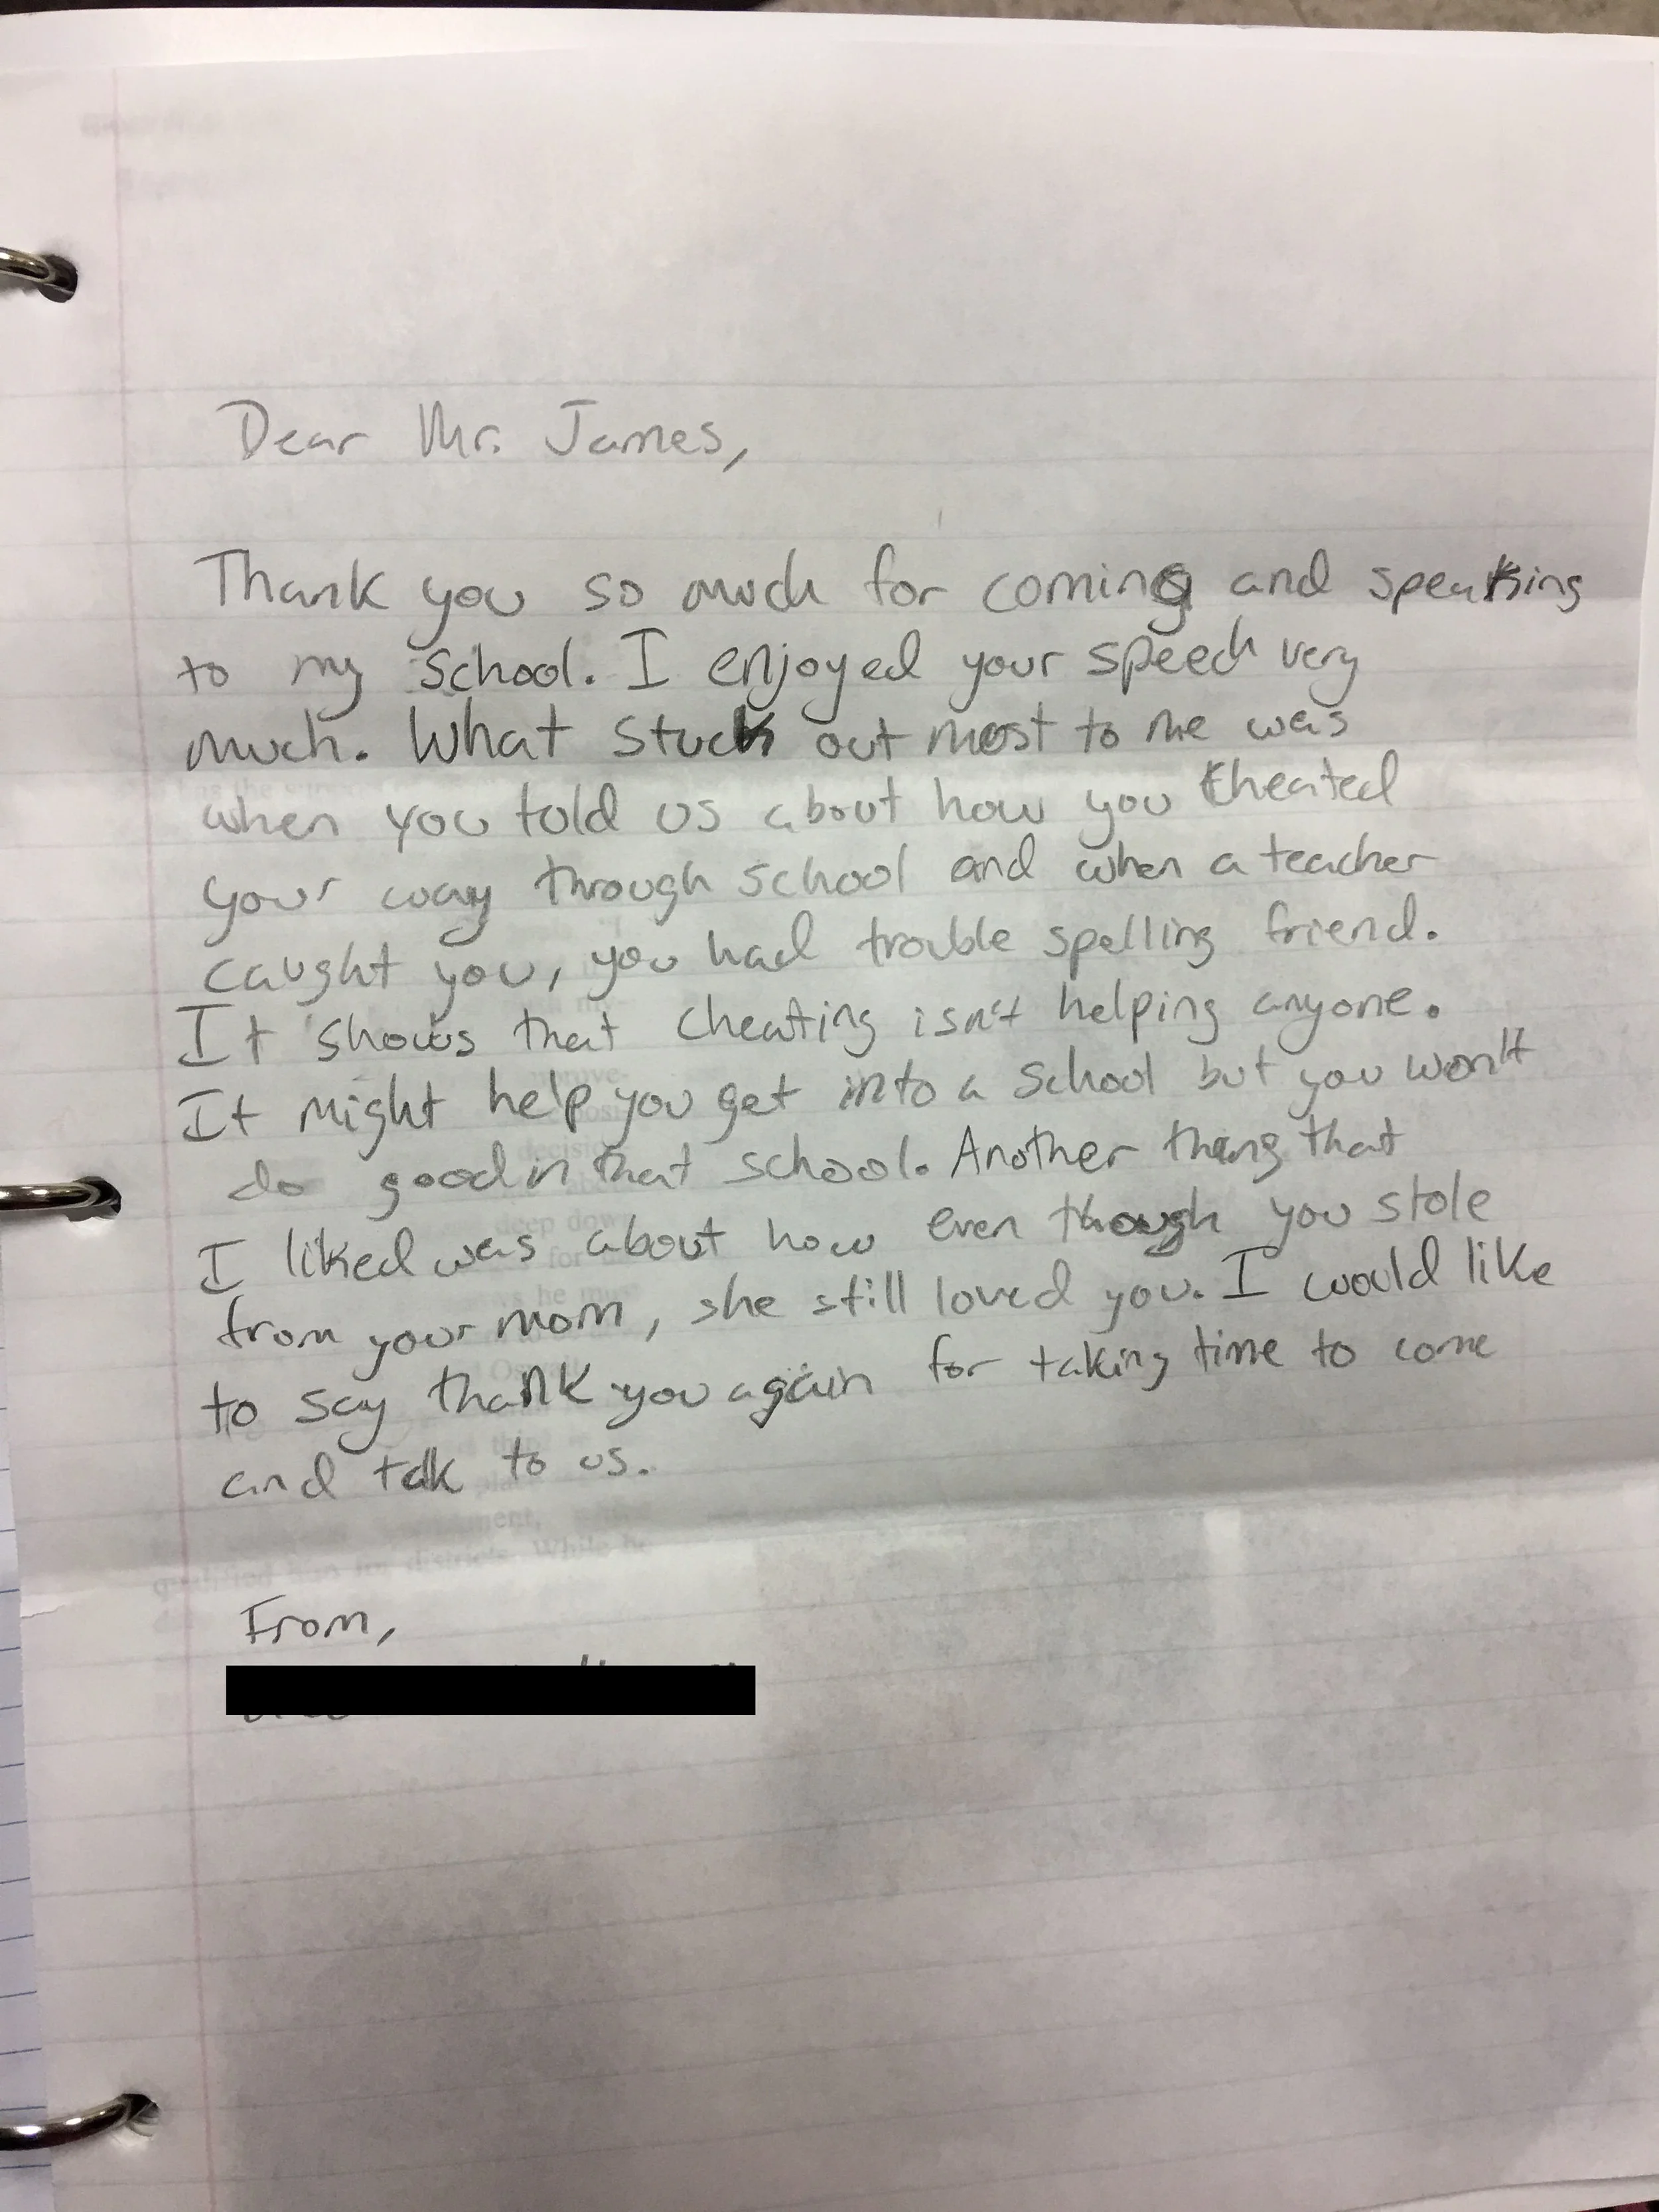 Dear Mr. James,
Thank you so much for coming and speaking
to my school. I enjoyed your speech very
much. What stuck out most to me was
when you told us about how you cheated
your way through school and when a teacher
caught you, you had trouble spelling friend.
It shows that cheating isn't helping anyone.
It might help you get into a school but you won't
do good in that school. Another thing that
I liked was about how even though you stole
from your mom, she still loved you. I would like
to say thank you again for taking time to come
and talk to us.
From,